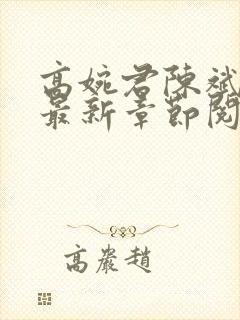 高婉君陳斌
最新章節閱
高嚴趙